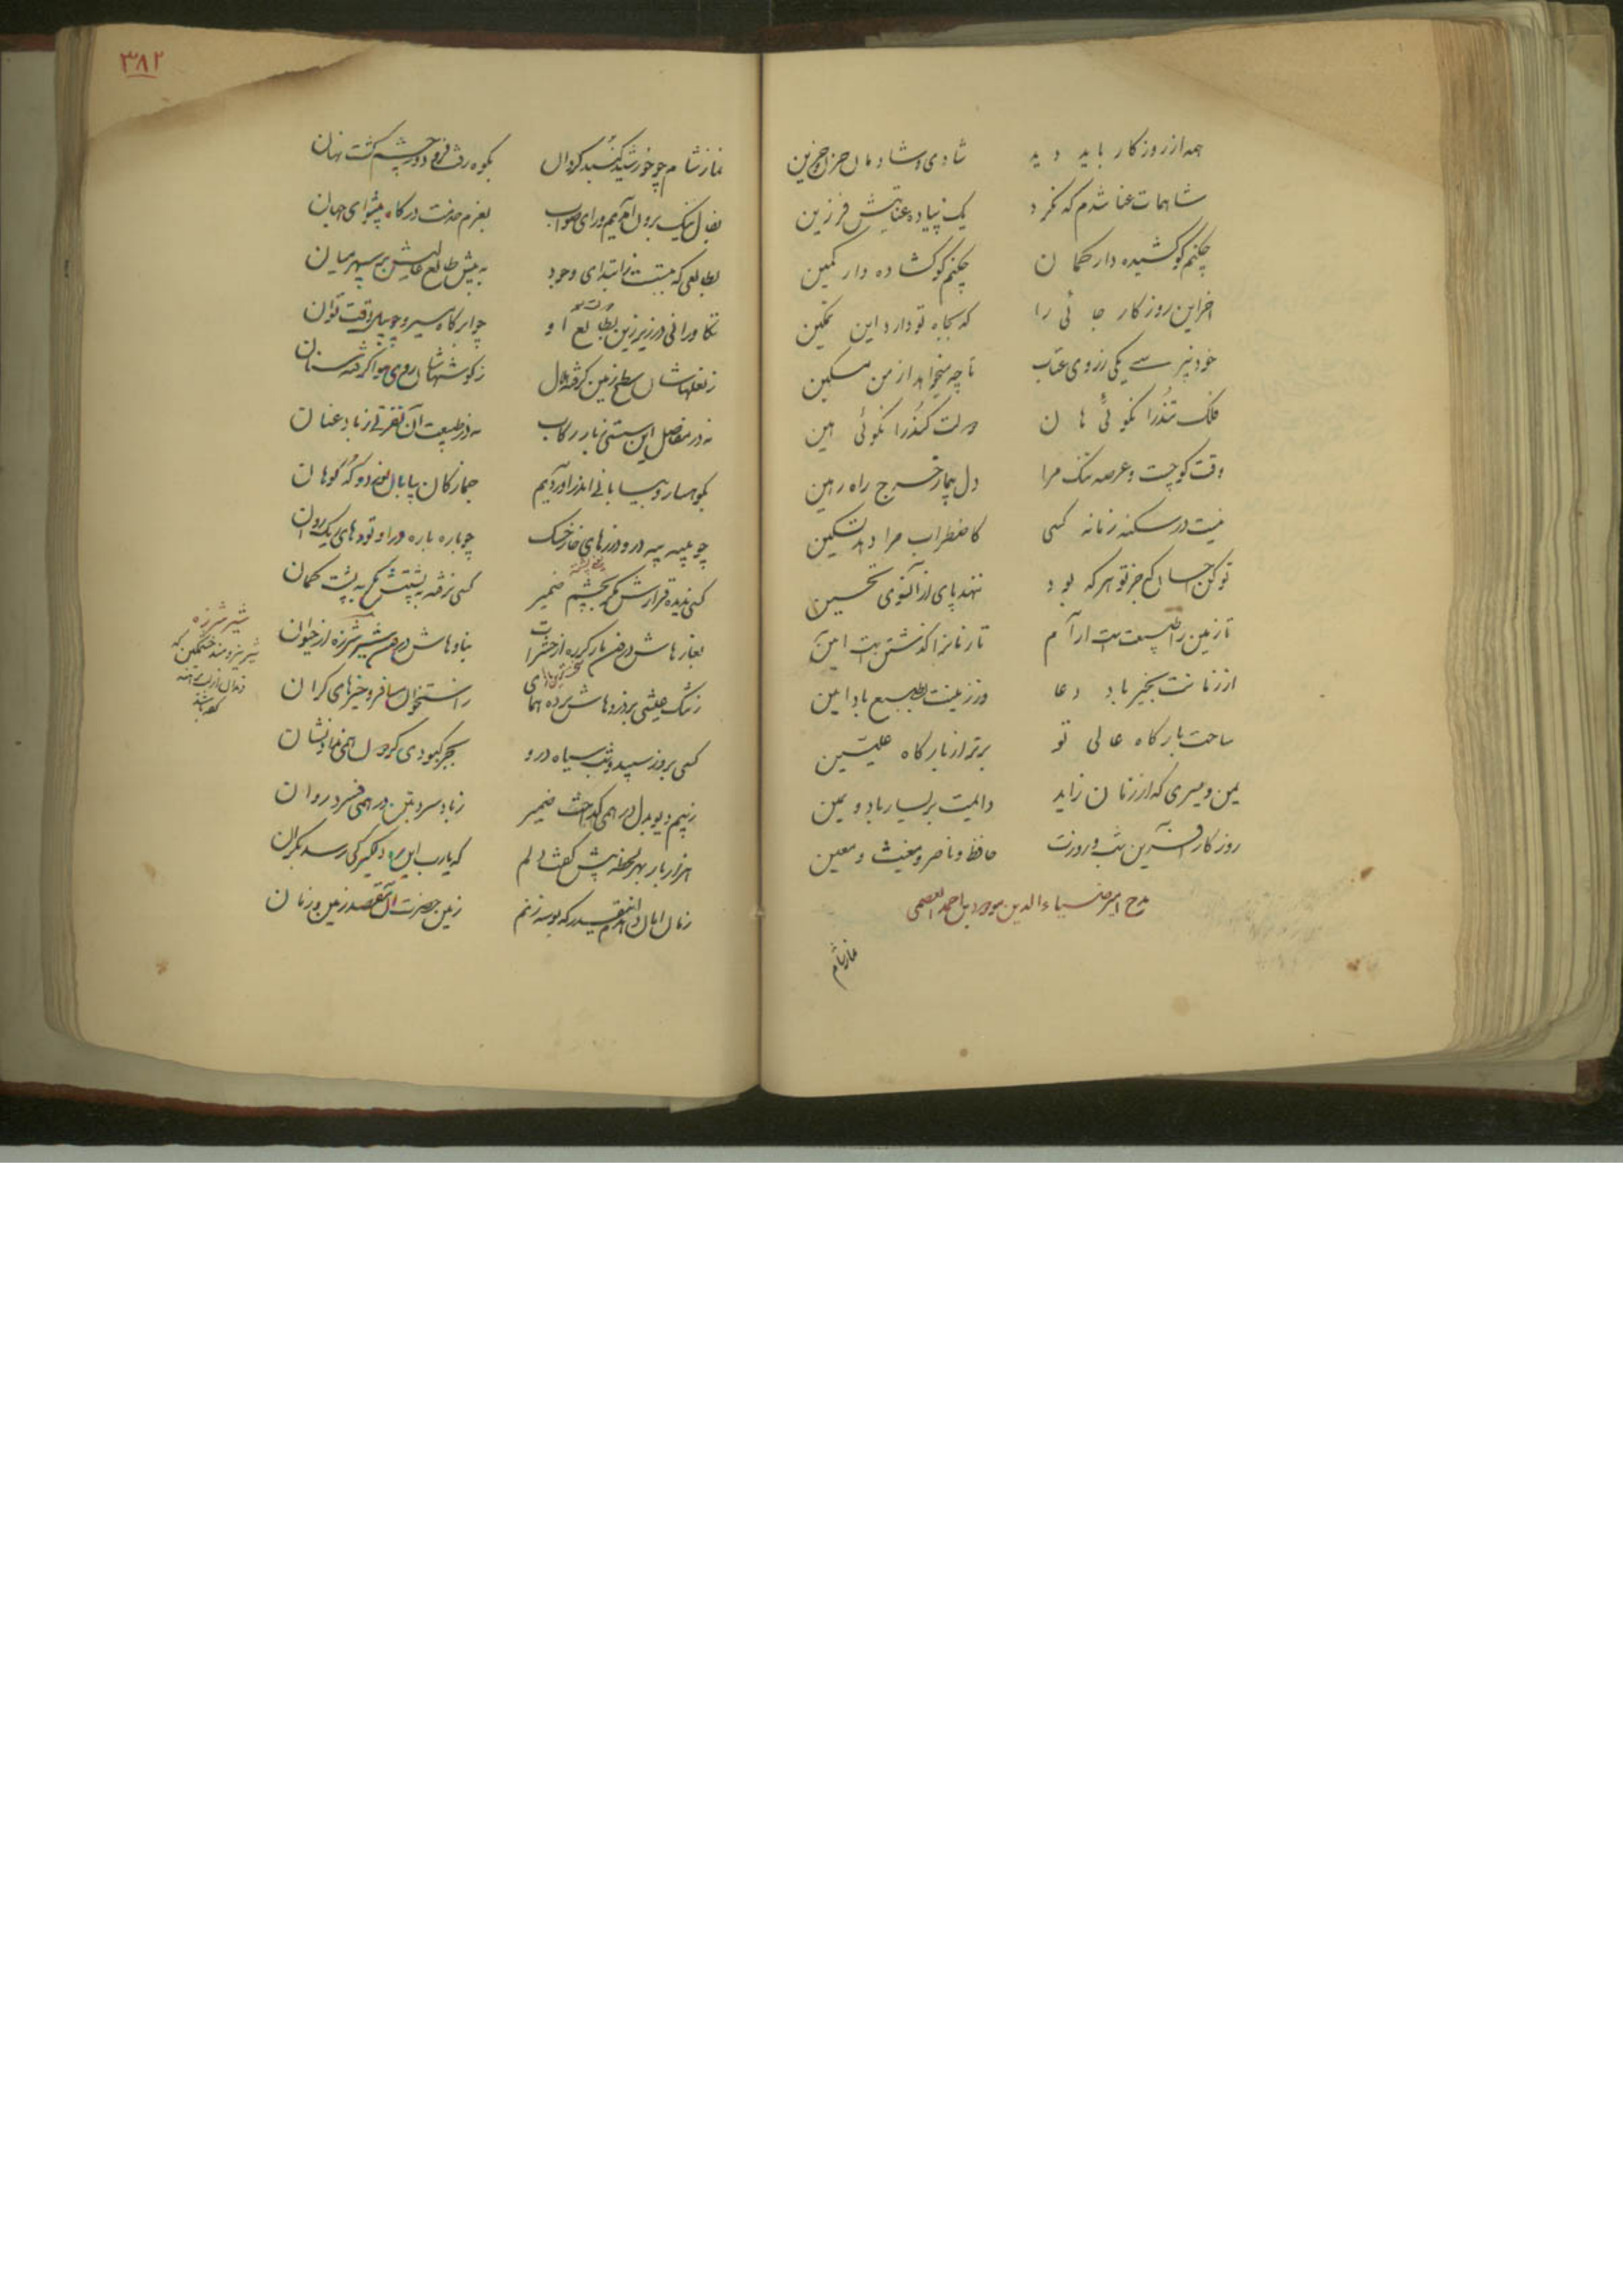 همه از روزگار باید دید شادی و شادمان حزن و حزین
شاهمات عنا شدم که نکرد یک پیاده عنایتش فرزین
چکنم کو کشیده دارد کمان چکنم کو گشاده دار کمین
اخر این روزگار جانی را که بجاه تو دارد این تمکین
خود نپرسی یکی ز روی عتاب تا چه میخواهد از من مسکین
فلک تند را نگوئی هان دولت کند را نگوئی هین
وقت کوچست و عرصه تنگ مرا دل بیمار خرج راه رهین
نیست در سکنه زمانه کسی کاضطراب مرا دهد تسکین
تو کن احسان که جز تو هر که بود ننهد پای از آنسوی تحسین
تا زمین را طبیعت است آرام تا زمانرا گذشتن است آیین
از زمانت بخیر باد دعا وز زمینت بطبع باد آمین
ساحت بارگاه عالی تو برتر از بارگاه علیین
یمن و یسری که از زمان زاید دایمت بر یسار باد و یمین
روزگار آفرین شب و روزت حافظ و ناصر و مغیث و معین
مدح امیر ضیاء الدین مودود بن احمد العصمی
نماز شام
۳۸۲
نماز شام چو خورشید گنبد گردان بکوه رفت فرو دور ز چشم گشت نهان
بفال نیک برون آمدیم و رای صواب بعزم خدمت درگاه پیشوای جهان
بطالعی که ببست ز ابتدای وجود به پیش طالع عالیش بر سپهر میان
تکاورانی در زیر زین بطالع او چو ابر گاه سیر و چو ببر وقت توان
ز نعلهاشان سطح زمین گرفته هلال ز گوشهاشان روی هوا گرفته سنان
نه در مفاصل این سستئی ز بار رکاب نه در طبیعت آن نفرتی ز باد عنان
بکوهسار و بیابانی اندر آوردیم جمازگان بیابان نورد و که کوهان
چو بیشه بیشه درو درزهای خار خسک چو باره باره درو تودهای ریگ روان
کسی ندیده فرازش مگر بچشم ضمیر کسی نرفته به پشتش مگر به پشت کمان
بغارهاش درون مار گرزه از حشرات بناوهاش درون شیر شرزه از حیوان
شیر شرزه
شیر نیرومند خشمگین که
ز تنگ عیشی بر دروهاش برده همای ز استخوان مسافر ذخیرهای گران
کسی بروز سپید و شب سیاه درو بجز کبودی گردون همی نداد نشان
ز بیم دیو بدل در همی گداخت ضمیر ز باد سرد بتن در همی فسرد روان
هزار بار بهر لحظه پیش گفت دلم که یارب این ره دلگیر کی رسد بکران
زمان امان دهدم تا بسدره که بوسه زنم زمین حضرت آن مقصد زمین و زمان